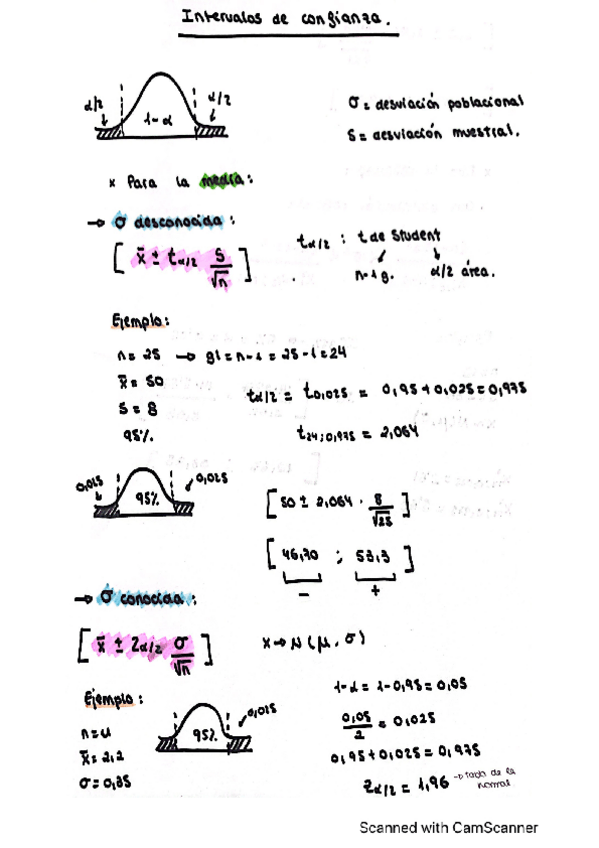 Intervalos de confianza.
α/2 1-α α/2
σ = desviación poblacional
S = desviación muestral.
x Para la media:
→ σ desconocida:
[ x̄ ± tα/2 S/√n ]
tα/2 : t de Student
n-1 g. α/2 área.
Ejemplo:
n = 25 → gl = n-1 = 25-1 = 24
x̄ = 50
S = 8
95%.
tα/2 = t0,025 = 0,95 + 0,025 = 0,975
t24;0,975 = 2,064
0,025 95% 0,025
[ 50 ± 2,064 · 8/√25 ]
[ 46,70 ; 53,3 ]
- +
→ σ conocida:
[ x̄ ± Zα/2 σ/√n ]
X → N(μ, σ)
Ejemplo:
n = 4
x̄ = 2,2
σ = 0,35
95%. 0,025
1-α = 1-0,95 = 0,05
0,05/2 = 0,025
0,95 + 0,025 = 0,975
Zα/2 = 1,96 → de la normal.
Scanned with CamScanner